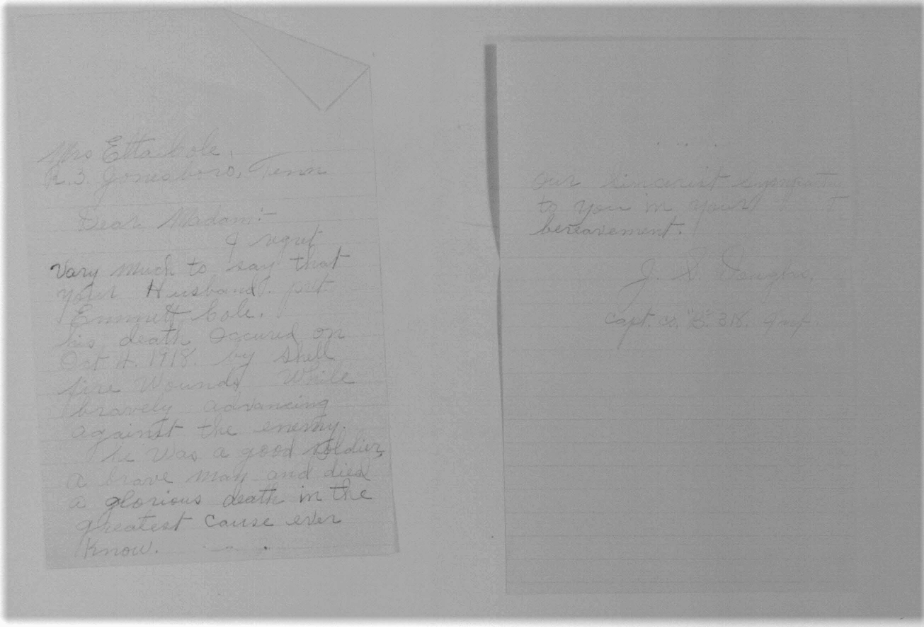 Mrs Etta Cole.
R.3. Jonesboro, Tenn
Dear Madam:-
I regret
Vary much to say that
your Husband. pvt
Emmett Cole.
his death Occured on
Oct 4. 1918. by shell
fire Wounds While
bravely advancing
against the enemy.
he was a good soldier,
a brave man and died
a glorious death in the
greatest cause ever
Know.
Our sincerist sympathy
to you in your
bereavement.
J. S. Douglas.
Capt. Co. "B" 318. Inf.